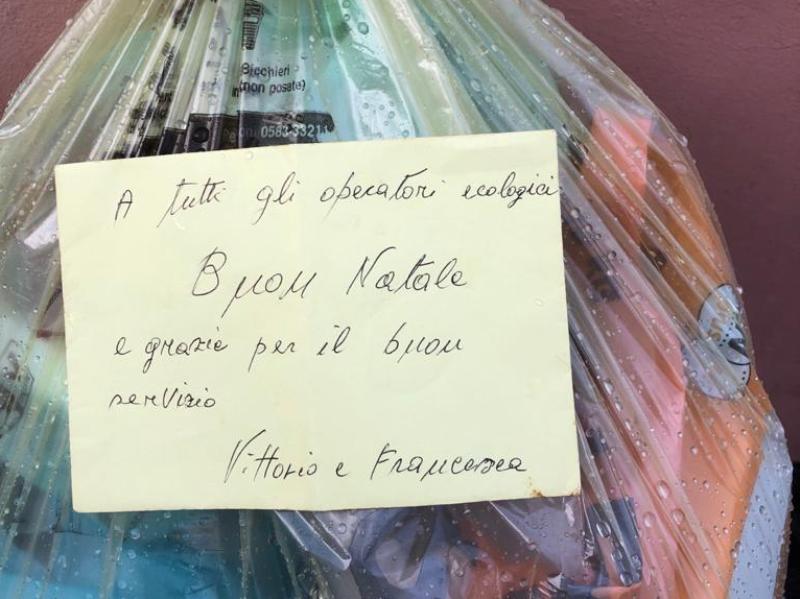 Bicchieri
(non posate)
0583 33211
A tutti gli operatori ecologici
Buon Natale
e grazie per il buon
servizio
Vittorio e Francesca